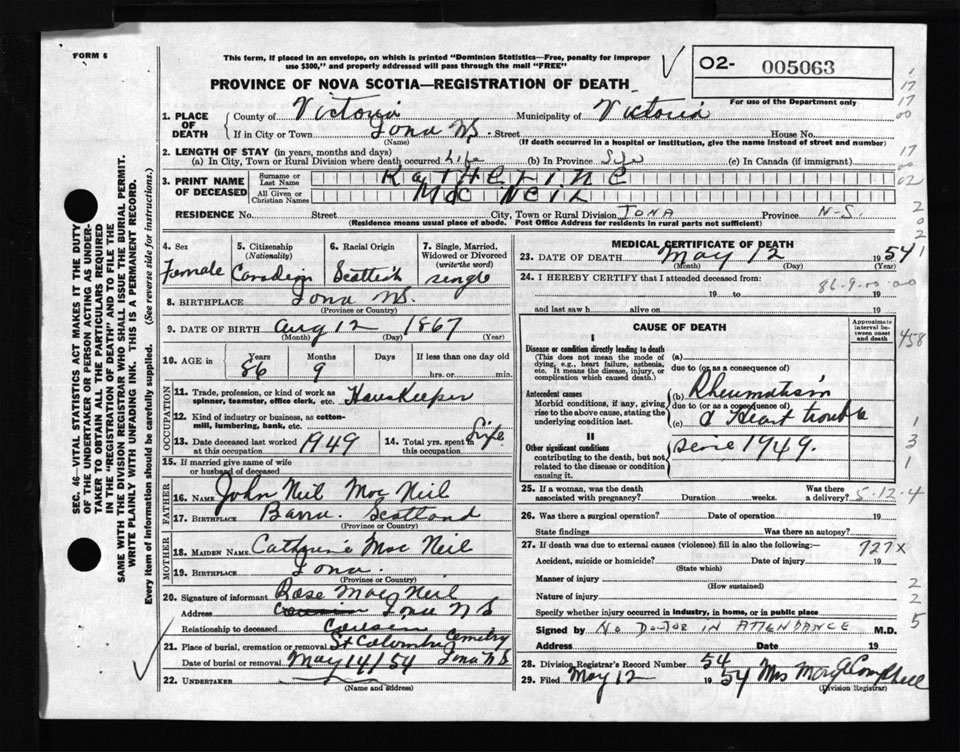 FORM 6
This form, if placed in an envelope, on which is printed "Dominion Statistics—Free, penalty for improper use $300," and properly addressed will pass through the mail "FREE"
02- 005063
For use of the Department only
PROVINCE OF NOVA SCOTIA—REGISTRATION OF DEATH
1. PLACE OF DEATH County of Victoria Municipality of Victoria
If in City or Town Iona NS. Street House No.
(Name) (If death occurred in a hospital or institution, give the name instead of street and number)
2. LENGTH OF STAY (in years, months and days)
(a) In City, Town or Rural Division where death occurred Life (b) In Province Life (c) In Canada (if immigrant)
3. PRINT NAME OF DECEASED Surname or Last Name KatHeriNe
All Given or Christian Names Mac Neil
RESIDENCE No. Street City, Town or Rural Division IONA Province N-S.
(Residence means usual place of abode. Post Office Address for residents in rural parts not sufficient)
4. Sex Female
5. Citizenship (Nationality) Canadien
6. Racial Origin Scottish
7. Single, Married, Widowed or Divorced (write the word) single
8. BIRTHPLACE Iona NS.
(Province or Country)
9. DATE OF BIRTH Aug 12 1867
(Month) (Day) (Year)
10. AGE in Years 86 Months 9 Days If less than one day old hrs. or min.
OCCUPATION
11. Trade, profession or kind of work as spinner, teamster, office clerk, etc. HausKeeper
12. Kind of industry or business, as cotton-mill, lumbering, bank, etc.
13. Date deceased last worked at this occupation 1949
14. Total yrs. spent in this occupation Life
15. If married give name of wife or husband of deceased
FATHER
16. NAME John Neil Mac Neil
17. BIRTHPLACE Barra Scotland
(Province or Country)
MOTHER
18. MAIDEN NAME Catherine Mac Neil
19. BIRTHPLACE Iona.
(Province or Country)
20. Signature of informant Rose Mac Neil
Address Iona NS
Relationship to deceased Cousin
21. Place of burial, cremation or removal St Columba Cemetry
Date of burial or removal May 14/54 Iona NS
22. UNDERTAKER
(Name and address)
MEDICAL CERTIFICATE OF DEATH
23. DATE OF DEATH May 12 1954
(Month) (Day) (Year)
24. I HEREBY CERTIFY that I attended deceased from:
86-9-00-00
19 to 19
and last saw h alive on 19
CAUSE OF DEATH
Approximate interval between onset and death
I
Disease or condition directly leading to death
(This does not mean the mode of dying, e.g., heart failure, asthenia, etc. It means the disease, injury, or complication which caused death.)
(a)
due to (or as a consequence of)
Antecedent causes
Morbid conditions, if any, giving rise to the above cause, stating the underlying condition last.
(b) Rheumatism
due to (or as a consequence of)
(c) & Heart trouble
II
Other significant conditions
contributing to the death, but not related to the disease or condition causing it.
since 1949.
25. If a woman, was the death associated with pregnancy? Duration weeks. Was there a delivery? 5-12-4
26. Was there a surgical operation? Date of operation 19
State findings Was there an autopsy?
27. If death was due to external causes (violence) fill in also the following:— 727X
Accident, suicide or homicide? Date of injury 19
(State which)
Manner of injury
(How sustained)
Nature of injury
Specify whether injury occurred in industry, in home, or in public place
Signed by No Doctor IN ATTENDANCE M.D.
Address Date 19
28. Division Registrar's Record Number 54
29. Filed May 12 1954 Mrs Mary Campbell
(Division Registrar)
SEC. 46—VITAL STATISTICS ACT MAKES IT THE DUTY OF THE UNDERTAKER OR PERSON ACTING AS UNDERTAKER TO OBTAIN ALL THE PARTICULARS REQUIRED IN THE "REGISTRATION OF DEATH" AND TO FILE THE SAME WITH THE DIVISION REGISTRAR WHO SHALL ISSUE THE BURIAL PERMIT.
WRITE PLAINLY WITH UNFADING INK. THIS IS A PERMANENT RECORD.
Every item of information should be carefully supplied. (See reverse side for instructions.)
17
17
00
17
00
02
2
0
2
1
458
1
3
1
2
2
5